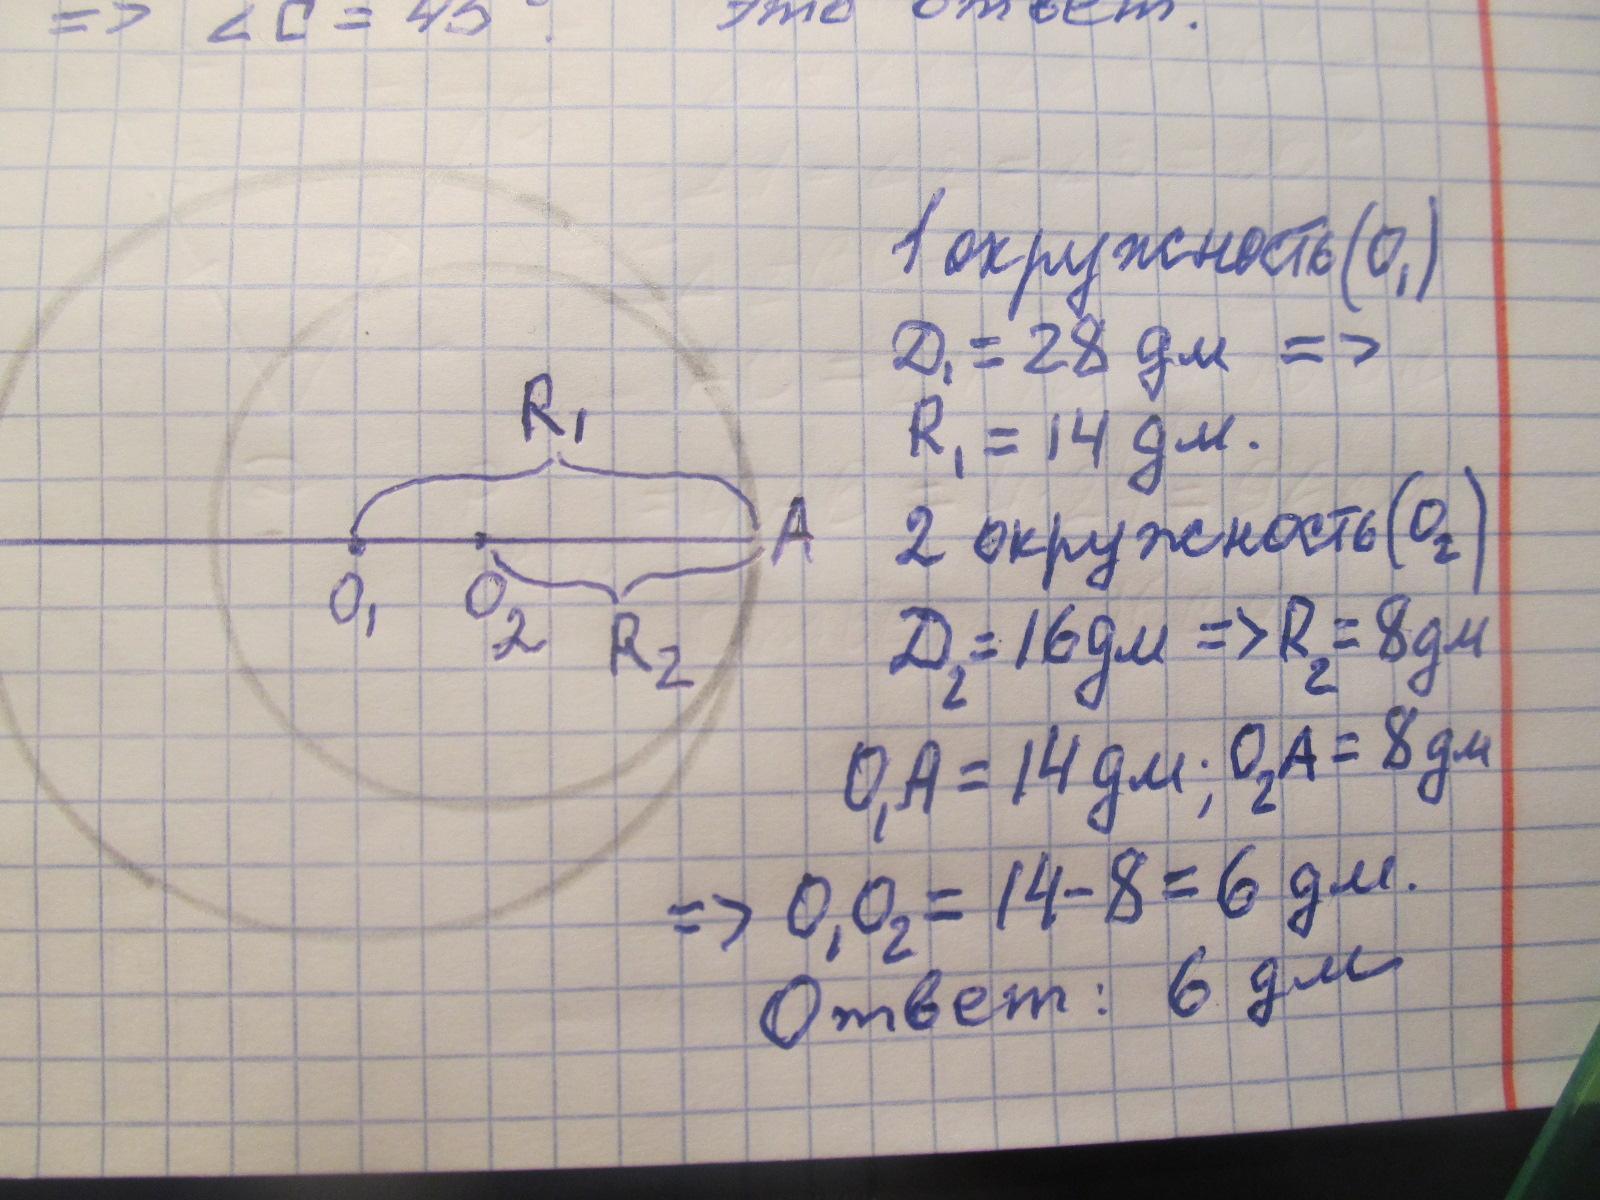 => ∠C = 45°. Это ответ.
R₁
A
O₁
O₂
R₂
1 окружность(O₁)
D₁ = 28 дм =>
R₁ = 14 дм.
2 окружность(O₂)
D₂ = 16 дм => R₂ = 8 дм
O₁A = 14 дм; O₂A = 8 дм
=> O₁O₂ = 14 - 8 = 6 дм.
Ответ: 6 дм